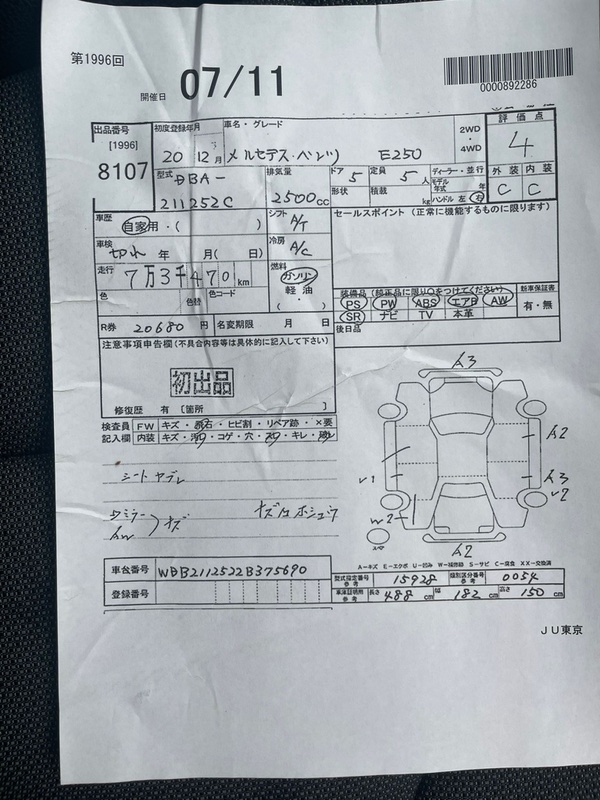 第1996回
開催日 07/11
0000892286
出品番号 [1996] 8107
初度登録年月 20年 12月
車名・グレード メルセデス・ベンツ E250
2WD・4WD
評価点 4
外装 C 内装 C
型式 DBA- 211252C
排気量 2500cc
ドア 5 形状
定員 5人 積載 kg
ディーラー・並行
モデル年式 年
ハンドル 左 右
車歴 自家用・( )
シフト A/T
セールスポイント (正常に機能するものに限ります)
車検 切れ 年 月( 日)
冷房 A/C
走行 7万3千470km
燃料 ガソリン 軽油 ( ・ )
色 色替 色コード
装備品 (純正品に限り○をつけてください) 新車保証書
PS PW ABS エアB AW 有・無
SR ナビ TV 本革
R券 20680円 名変期限 月 日
後日品
注意事項申告欄(不具合内容等は具体的に記入して下さい)
初出品
修復歴 有 [箇所 ]
検査員記入欄
FW キズ・飛石・ヒビ割・リペア跡・×要
内装 キズ・汚・コゲ・穴・スリ・キレ・
シートヤブレ
ドミラー AW キズ
キズ凹ホシュウ
A3
A2
A3
V2
V1
W2
スペア
A2
A-キズ E-エクボ U-凹み W-補修跡 S-サビ C-腐食 XX-交換済
車台番号 WDB2112522B375690
登録番号
型式指定番号 参考 15928 類別区分番号 参考 0054
車庫証明用 参考 長さ 488cm 幅 182cm 高さ 150cm
JU東京